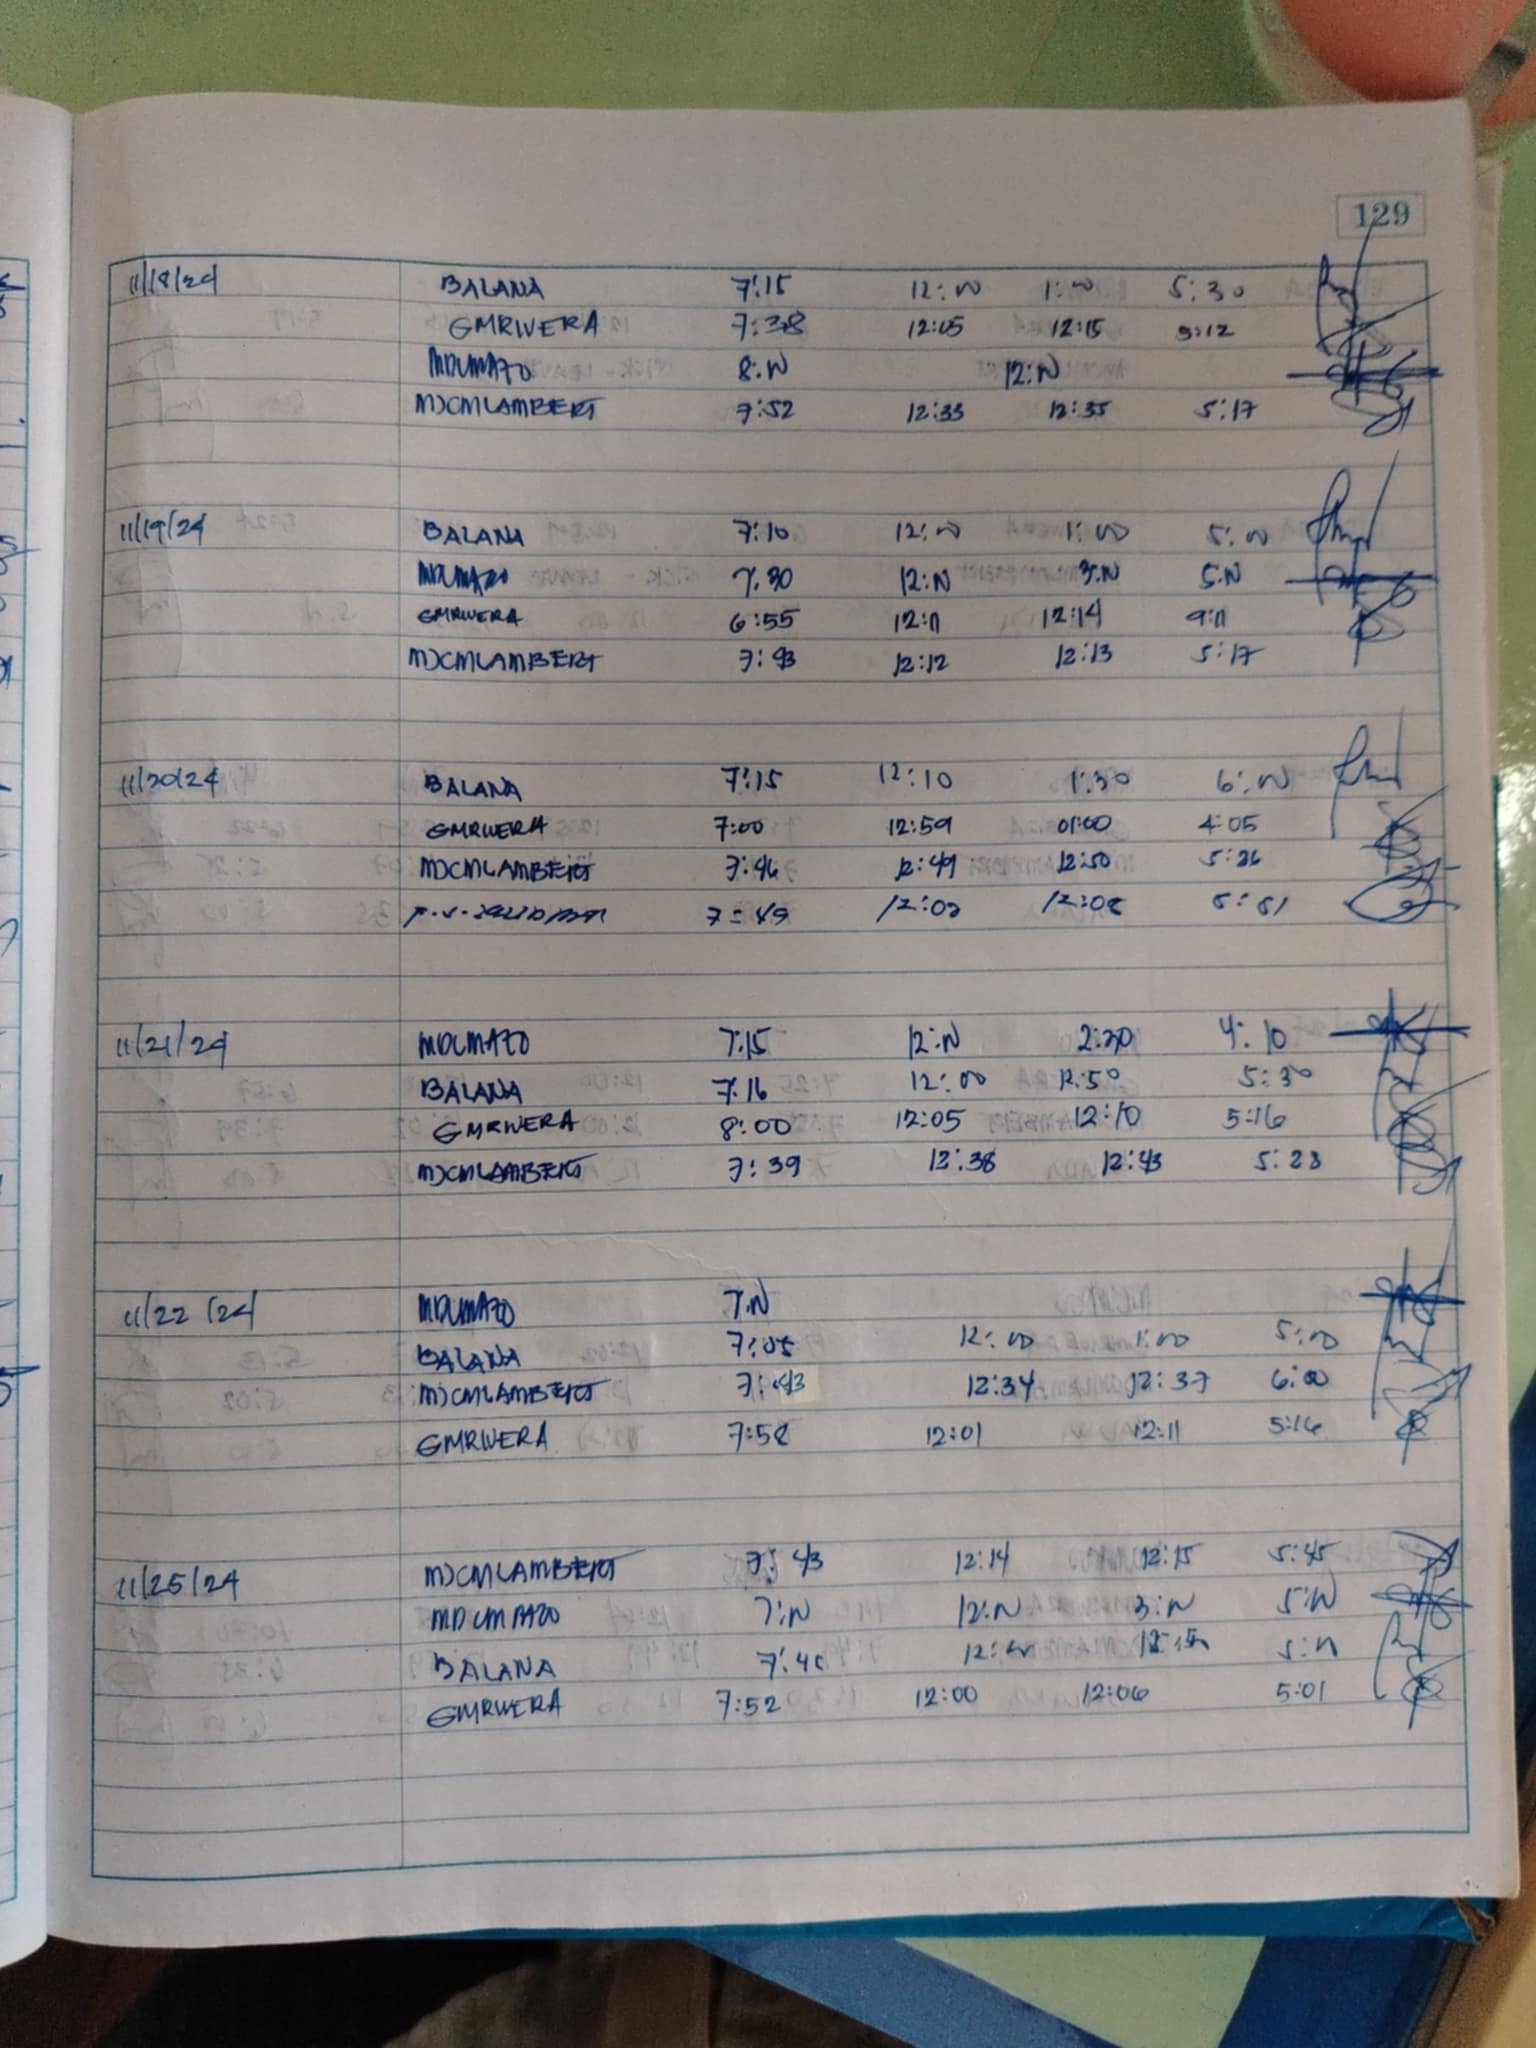 129
11/18/24 BALANA 7:15 12:00 1:00 5:30
GMRIVERA 7:38 12:05 12:15 5:12
MDUMAZO 8:N 12:N
MJCMLAMBERT 7:52 12:33 12:35 5:17
11/19/24 BALANA 7:10 12:00 1:00 5:00
MDUMAZO 7:30 12:N 3:N 5:N
GMRIVERA 6:55 12:11 12:14
MJCMLAMBERT 7:43 12:12 12:13 5:17
11/20/24 BALANA 7:15 12:10 1:30 6:00
GMRIVERA 7:00 12:59 01:00 4:05
MJCMLAMBERT 7:46 12:49 12:50 5:26
7:49
11/21/24 MDUMAZO 7:15 12:N 2:30 4:10
BALANA 7:16 12:00 12:50 5:30
GMRIVERA 8:00 12:05 12:10 5:16
MJCMLAMBERT 7:39 12:38 12:43 5:23
11/22/24 MDUMAZO 7:N
BALANA 7:05 12:00 1:00 5:00
MJCMLAMBERT 7:43 12:34 12:37 6:00
GMRIVERA 7:58 12:01 12:11 5:16
11/25/24 MJCMLAMBERT 7:43 12:14 12:15 5:45
MDUMAZO 7:N 12:N 3:N 5:N
BALANA 7:40
GMRIVERA 7:52 12:00 12:06 5:01